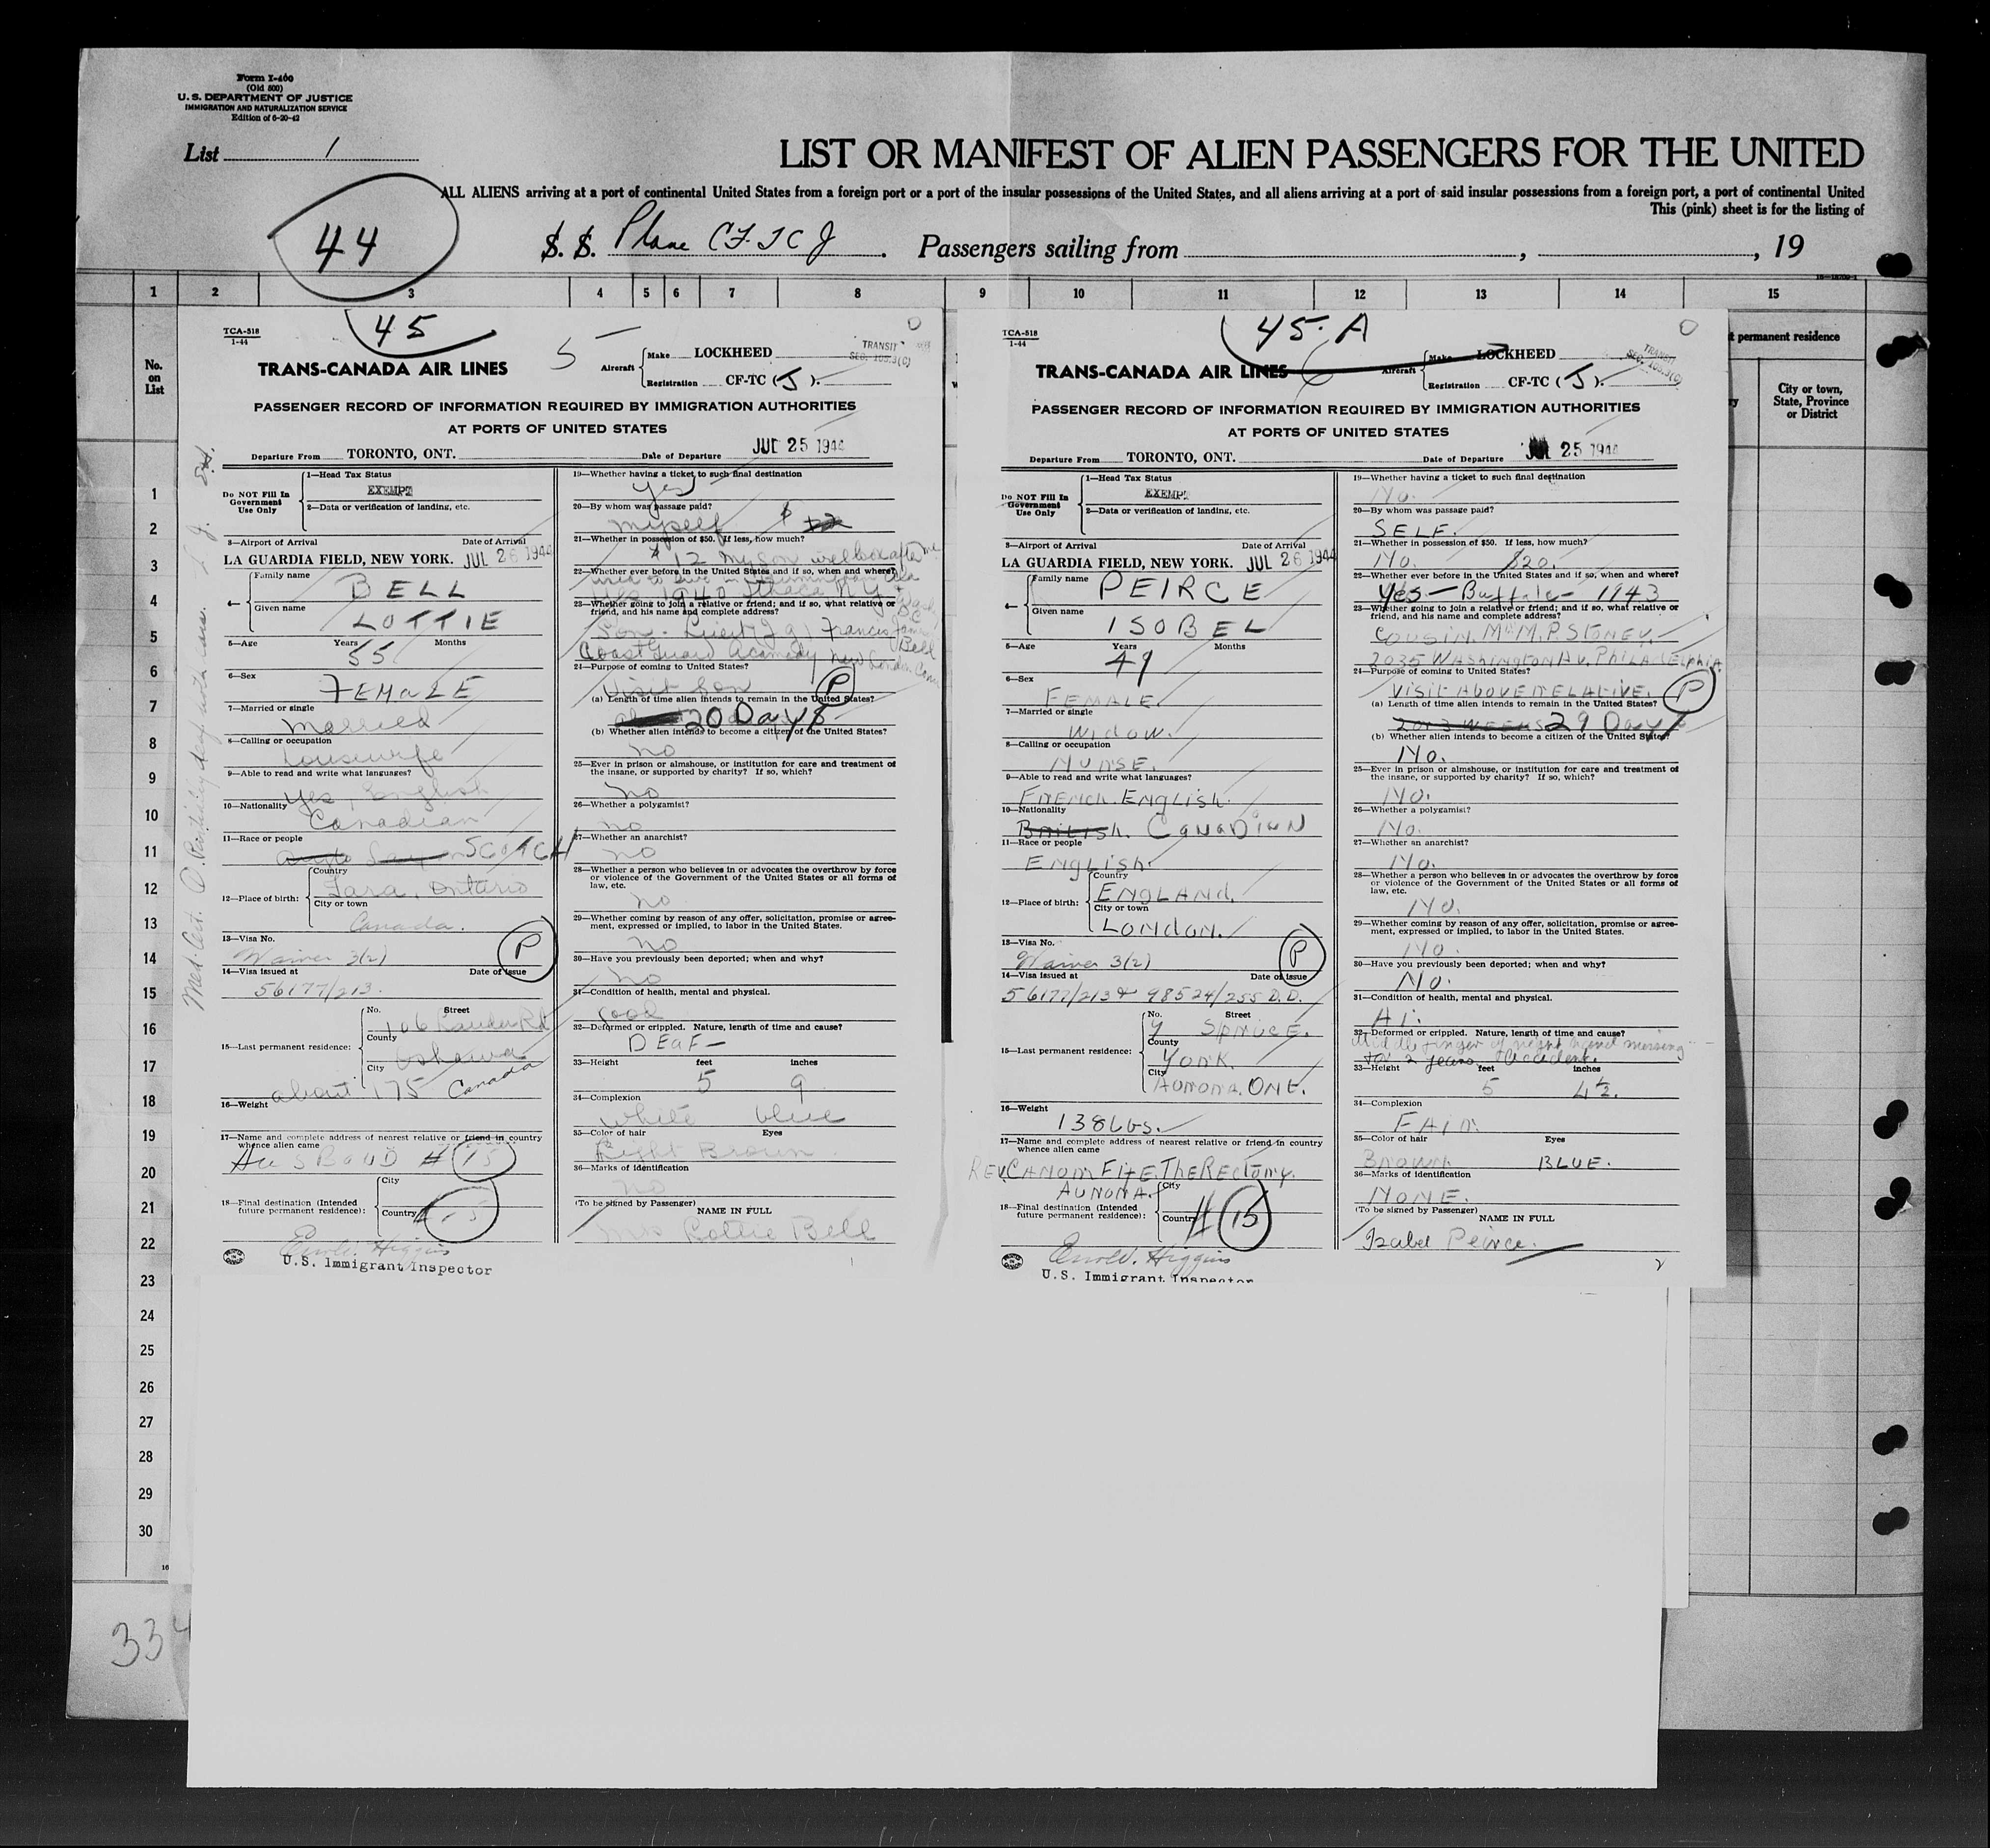 Form I-400
(Old 500)
U. S. DEPARTMENT OF JUSTICE
IMMIGRATION AND NATURALIZATION SERVICE
Edition of 6-20-42
List 1
LIST OR MANIFEST OF ALIEN PASSENGERS FOR THE UNITED
ALL ALIENS arriving at a port of continental United States from a foreign port or a port of the insular possessions of the United States, and all aliens arriving at a port of said insular possessions from a foreign port, a port of continental United
This (pink) sheet is for the listing of
44
S. S. Plane CF-TCJ. Passengers sailing from , , 19
1 2 3 4 5 6 7 8 9 10 11 12 13 14 15
No.
on
List
permanent residence
City or town,
State, Province
or District
1
2
3
4
5
6
7
8
9
10
11
12
13
14
15
16
17
18
19
20
21
22
23
24
25
26
27
28
29
30
16
334
Med. Cert.
TCA-518
1-44
45
5
TRANS-CANADA AIR LINES
Aircraft
Make LOCKHEED
Registration CF-TC (J).
TRANSIT
SEC. 105.3(C)
PASSENGER RECORD OF INFORMATION REQUIRED BY IMMIGRATION AUTHORITIES
AT PORTS OF UNITED STATES
Departure From TORONTO, ONT. Date of Departure JUL 25 1944
Do NOT Fill In
Government
Use Only
1—Head Tax Status
EXEMPT
2—Data or verification of landing, etc.
3—Airport of Arrival Date of Arrival
LA GUARDIA FIELD, NEW YORK. JUL 26 1944
4—
Family name
BELL
Given name
LOTTIE
5—Age Years Months
55
6—Sex
FEMALE
7—Married or single
Married
8—Calling or occupation
housewife
9—Able to read and write what languages?
Yes, English
10—Nationality
Canadian
11—Race or people
Anglo Saxon SCOTCH
12—Place of birth:
Country
Tara, Ontario
City or town
Canada.
13—Visa No.
Waiver 3(2)
P
14—Visa issued at Date of issue
56177/213.
15—Last permanent residence:
No. Street
106 Rd
County
Oshawa
City
Canada
16—Weight about 175
17—Name and complete address of nearest relative or friend in country
whence alien came
HUSBAND # 15
18—Final destination (Intended
future permanent residence):
City
Country # 15
Higgins
U.S. Immigrant Inspector
19—Whether having a ticket to such final destination
Yes
20—By whom was passage paid?
Myself $ 12
21—Whether in possession of $50. If less, how much?
$ 12 My son will look after me
22—Whether ever before in the United States and if so, when and where?
used to live in
Yes 1940 Ithaca N Y
23—Whether going to join a relative or friend; and if so, what relative or
friend, and his name and complete address?
Son. Lieut (J g) Francis James Bell
Coast Guard Academy New London Conn
24—Purpose of coming to United States?
Visit Son
P
(a) Length of time alien intends to remain in the United States?
20 Days
(b) Whether alien intends to become a citizen of the United States?
no
25—Ever in prison or almshouse, or institution for care and treatment of
the insane, or supported by charity? If so, which?
no
26—Whether a polygamist?
no
27—Whether an anarchist?
no
28—Whether a person who believes in or advocates the overthrow by force
or violence of the Government of the United States or all forms of
law, etc.
no
29—Whether coming by reason of any offer, solicitation, promise or agree-
ment, expressed or implied, to labor in the United States.
no
30—Have you previously been deported; when and why?
no
31—Condition of health, mental and physical.
good
32—Deformed or crippled. Nature, length of time and cause?
DEAF—
33—Height feet inches
5 9
34—Complexion
White blue
35—Color of hair Eyes
Light Brown
36—Marks of identification
no
(To be signed by Passenger)
NAME IN FULL
Mrs Lottie Bell
TCA-518
1-44
45-A
6
TRANS-CANADA AIR LINES
Aircraft
Make LOCKHEED
Registration CF-TC (J).
TRANSIT
SEC. 105.3(C)
PASSENGER RECORD OF INFORMATION REQUIRED BY IMMIGRATION AUTHORITIES
AT PORTS OF UNITED STATES
Departure From TORONTO, ONT. Date of Departure JUL 25 1944
Do NOT Fill In
Government
Use Only
1—Head Tax Status
EXEMPT
2—Data or verification of landing, etc.
3—Airport of Arrival Date of Arrival
LA GUARDIA FIELD, NEW YORK. JUL 26 1944
4—
Family name
PEIRCE
Given name
ISOBEL
5—Age Years Months
49
6—Sex
FEMALE.
7—Married or single
Widow.
8—Calling or occupation
NURSE.
9—Able to read and write what languages?
FRENCH. ENGLISH.
10—Nationality
British. CANADIAN
11—Race or people
ENGLISH.
12—Place of birth:
Country
ENGLAND.
City or town
LONDON.
13—Visa No.
Waiver 3(2)
P
14—Visa issued at Date of issue
56177/213 & 98524/255 D.D.
15—Last permanent residence:
No. Street
Y SPRUCE.
County
YORK.
City
AURORA. ONT.
16—Weight
138 Lbs.
17—Name and complete address of nearest relative or friend in country
whence alien came
REV. CANON FIFE. THE RECTORY.
AURORA.
18—Final destination (Intended
future permanent residence):
City
Country # 15
Higgins
U.S. Immigrant Inspector
19—Whether having a ticket to such final destination
NO.
20—By whom was passage paid?
SELF.
21—Whether in possession of $50. If less, how much?
NO. $20.
22—Whether ever before in the United States and if so, when and where?
Yes — Buffalo — 1943
23—Whether going to join a relative or friend; and if so, what relative or
friend, and his name and complete address?
COUSIN. M. P. STONEY.
2035 WASHINGTON AV. PHILADELPHIA
24—Purpose of coming to United States?
VISIT ABOVE RELATIVE.
P
(a) Length of time alien intends to remain in the United States?
2 or 3 WEEKS 29 Days
(b) Whether alien intends to become a citizen of the United States?
NO.
25—Ever in prison or almshouse, or institution for care and treatment of
the insane, or supported by charity? If so, which?
NO.
26—Whether a polygamist?
NO.
27—Whether an anarchist?
NO.
28—Whether a person who believes in or advocates the overthrow by force
or violence of the Government of the United States or all forms of
law, etc.
NO.
29—Whether coming by reason of any offer, solicitation, promise or agree-
ment, expressed or implied, to labor in the United States.
NO.
30—Have you previously been deported; when and why?
NO.
31—Condition of health, mental and physical.
A1.
32—Deformed or crippled. Nature, length of time and cause?
Middle finger of right hand missing
for 2 years. Accident.
33—Height feet inches
5 4½.
34—Complexion
FAIR.
35—Color of hair Eyes
BROWN. BLUE.
36—Marks of identification
NONE.
(To be signed by Passenger)
NAME IN FULL
Isabel Peirce.
2